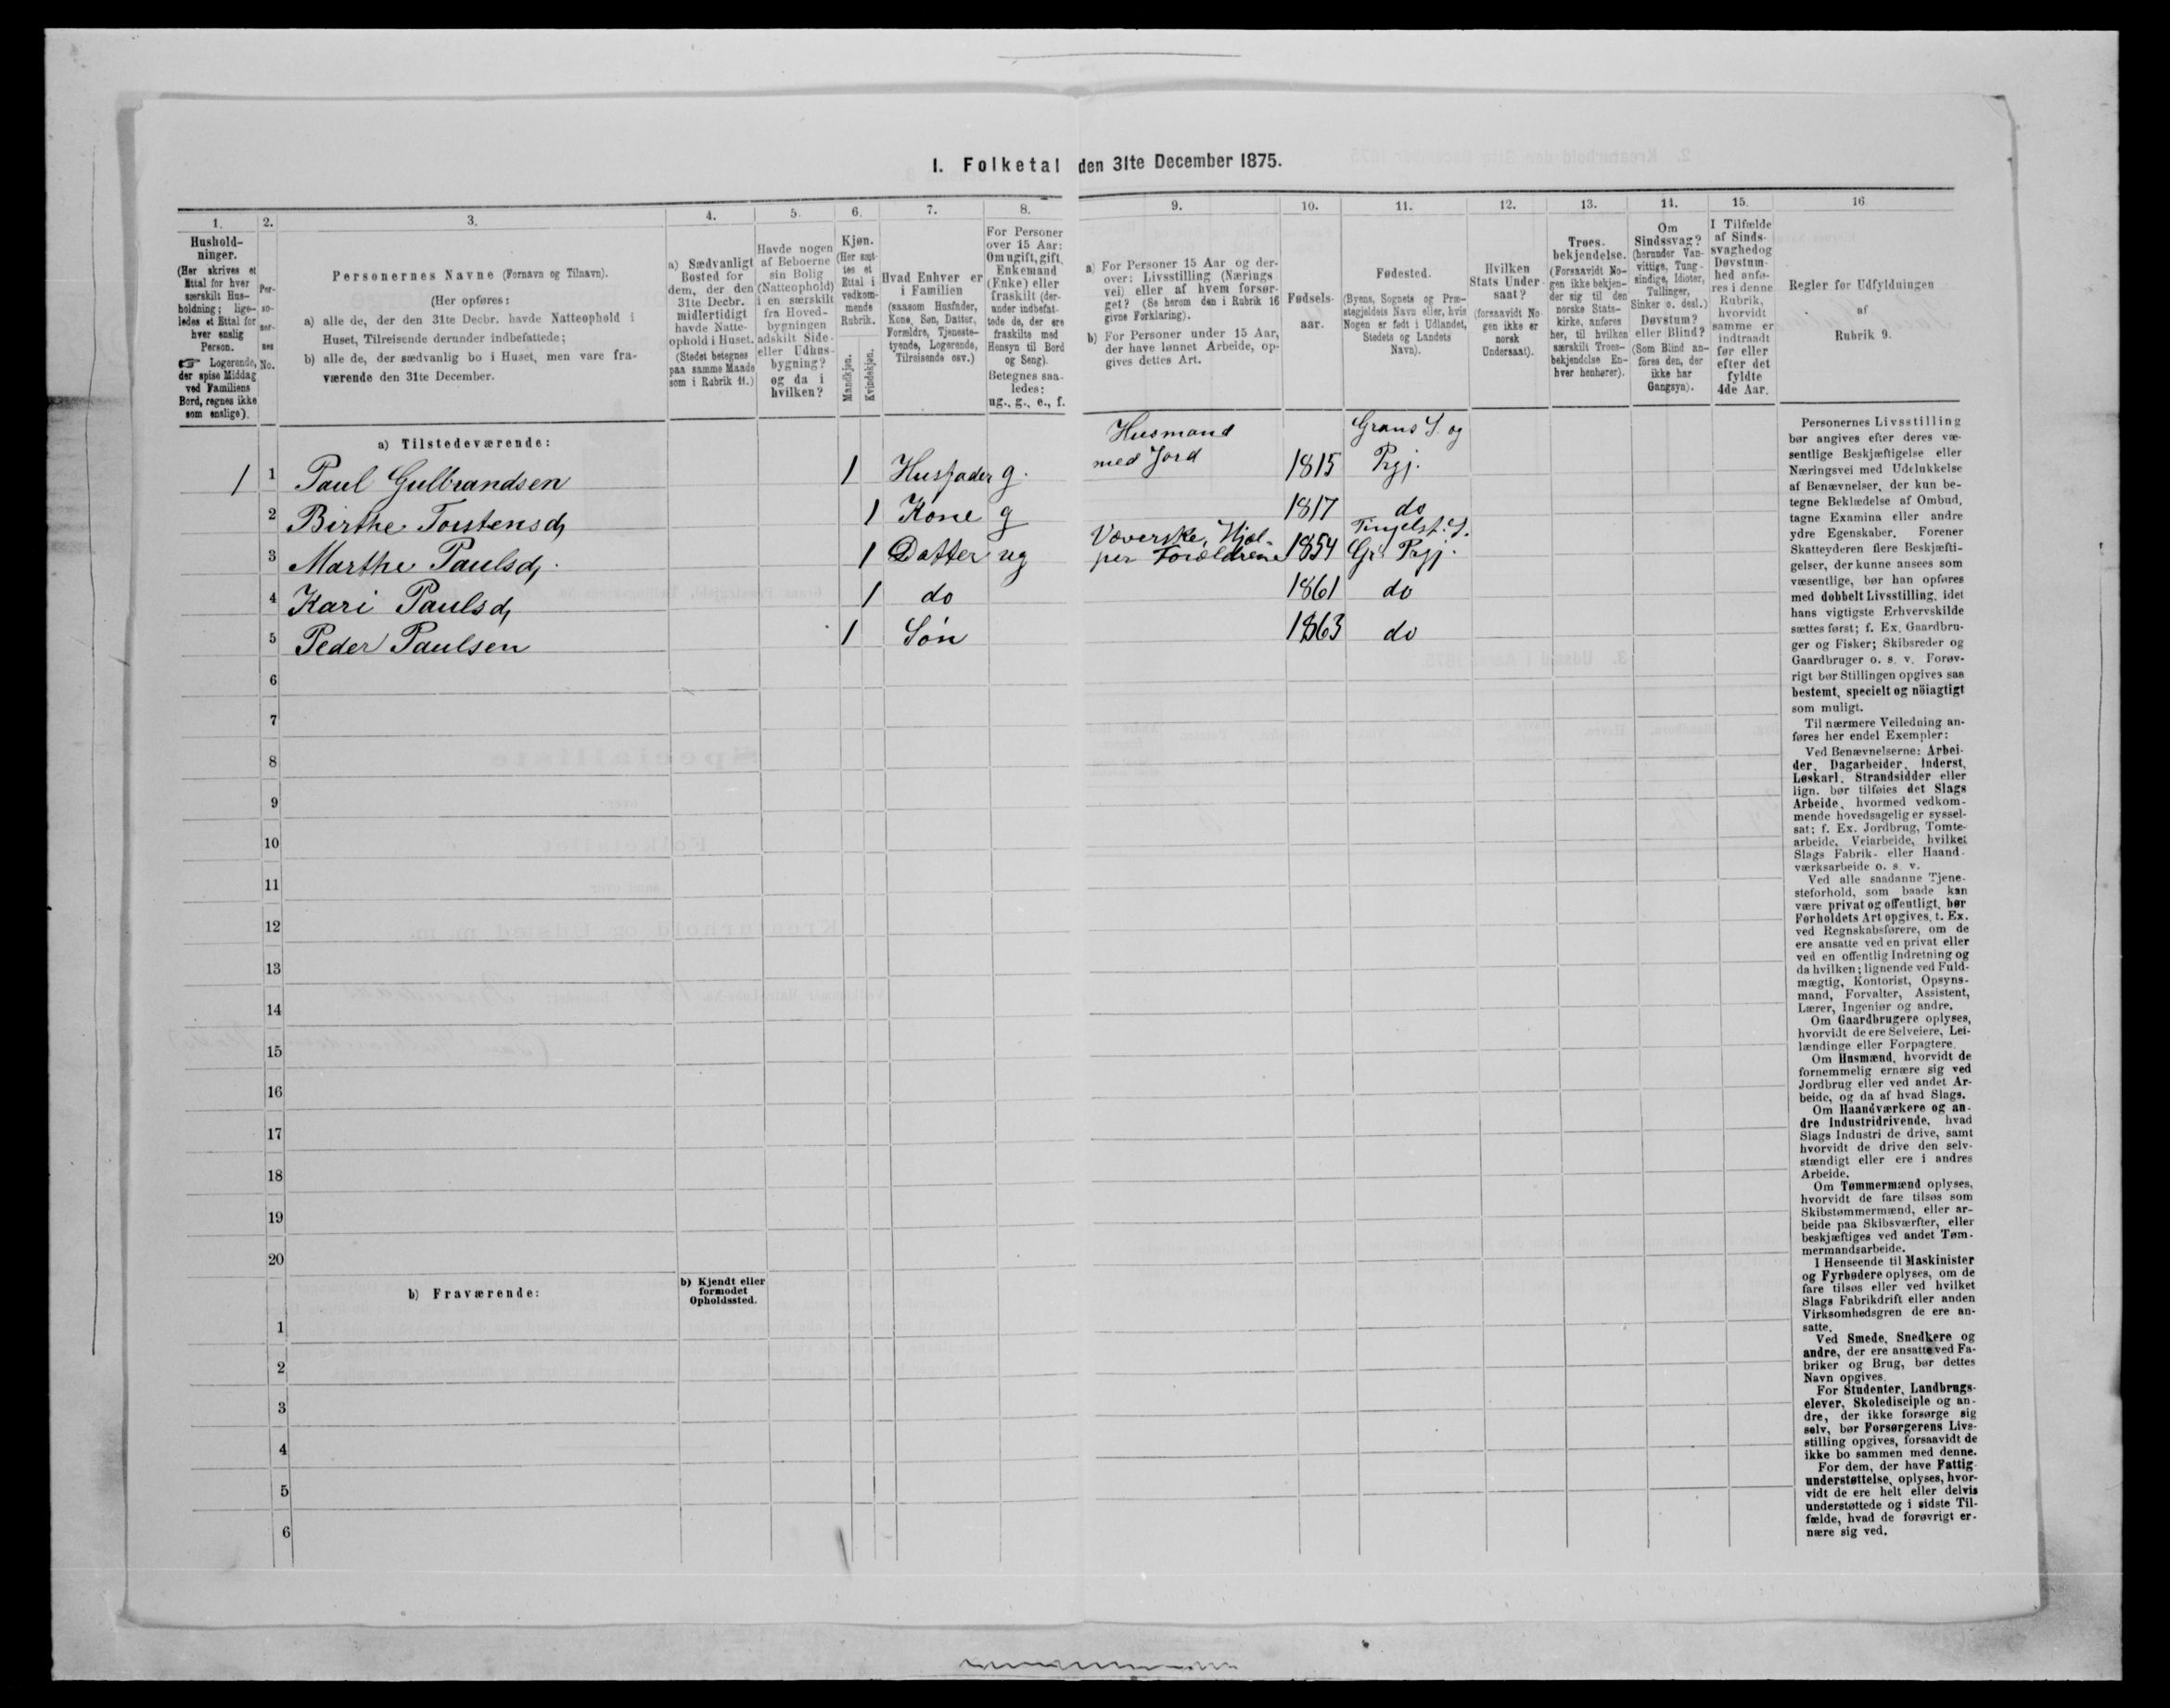 I. Folketal den 31te December 1875.
1.
Hushold-
ninger.
(Her skrives et
Ettal for hver
særskilt Hus-
holdning; lige-
ledes et Ettal for
hver enslig
Person.
☞ Logerende,
der spise Middag
ved Familiens
Bord, regnes ikke
som enslige).
2.
Per-
so-
ner-
nes
No.
3.
Personernes Navne (Fornavn og Tilnavn).
(Her opføres:
a) alle de, der den 31te Decbr. havde Natteophold i
Huset, Tilreisende derunder indbefattede;
b) alle de, der sædvanlig bo i Huset, men vare fra-
værende den 31te December.
4.
a) Sædvanligt
Bosted for
dem, der den
31te Decbr.
midlertidigt
havde Natte-
ophold i Huset.
(Stedet betegnes
paa samme Maade
som i Rubrik 11.)
5.
Havde nogen
af Beboerne
sin Bolig
(Natteophold)
i en særskilt
fra Hoved-
bygningen
adskilt Side-
eller Udhus-
bygning?
og da i
hvilken?
6.
Kjøn.
(Her sæt-
tes et
Ettal i
vedkom-
mende
Rubrik.
Mandkjøn.
Kvindekjøn.
7.
Hvad Enhver er
i Familien
(saasom Husfader,
Kone, Søn, Datter,
Forældre, Tjeneste-
tyende, Logerende,
Tilreisende osv.)
8.
For Personer
over 15 Aar:
Om ugift, gift,
Enkemand
(Enke) eller
fraskilt (der-
under indbefat-
tede de, der ere
fraskilte med
Hensyn til Bord
og Seng).
Betegnes saa-
ledes:
ug., g., e., f.
9.
a) For Personer 15 Aar og der-
over: Livsstilling (Nærings
vei) eller af hvem forsør-
get? (Se herom den i Rubrik 16
givne Forklaring).
b) For Personer under 15 Aar,
der have lønnet Arbeide, op-
gives dettes Art.
10.
Fødsels-
aar.
11.
Fødested.
(Byens, Sognets og Præ-
stegjeldets Navn eller, hvis
Nogen er født i Udlandet,
Stedets og Landets
Navn).
12.
Hvilken
Stats Under
saat?
(forsaavidt No
gen ikke er
norsk
Undersaat).
13.
Troes-
bekjendelse.
(Forsaavidt No-
gen ikke bekjen-
der sig til den
norske Stats-
kirke, anføres
her, til hvilken
særskilt Troes-
bekjendelse En-
hver henhører).
14.
Om
Sindssvag?
(herunder Van-
vittige, Tung-
sindige, Idioter,
Tullinger,
Sinker o. desl.)
Døvstum?
eller Blind?
(Som Blind an-
føres den, der
ikke har
Gangsyn).
15.
I Tilfælde
af Sinds-
svaghed og
Døvstum-
hed anfø-
res i denne
Rubrik,
hvorvidt
samme er
indtraadt
før eller
efter det
fyldte
4de Aar.
16
Regler for Udfyldningen
af
Rubrik 9.
a) Tilstedeværende:
1 1 Paul Gulbrandsen 1 Husfader g. Husmand
med Jord 1815 Grans S. og
Prgj.
2 Birthe Torstensd, 1 Kone g 1817 do
3 Marthe Paulsd, 1 Datter ug Væverske, Hjæl-
per Forældrene 1854 Tingelst. S.
Gr. Prgj.
4 Kari Paulsd, 1 do 1861 do
5 Peder Paulsen 1 Søn 1863 do
6
7
8
9
10
11
12
13
14
15
16
17
18
19
20
b) Fraværende:
b) Kjendt eller
formodet
Opholdssted.
1
2
3
4
5
6
Personernes Livsstilling
bør angives efter deres væ-
sentlige Beskjæftigelse eller
Næringsvei med Udelukkelse
af Benævnelser, der kun be-
tegne Beklædelse af Ombud,
tagne Examina eller andre
ydre Egenskaber. Forener
Skatteyderen flere Beskjæfti-
gelser, der kunne ansees som
væsentlige, bør han opføres
med dobbelt Livsstilling, idet
hans vigtigste Erhvervskilde
sættes først; f. Ex. Gaardbru-
ger og Fisker; Skibsreder og
Gaardbruger o. s. v. Forøv-
rigt bør Stillingen opgives saa
bestemt, specielt og nöiagtigt
som muligt.
Til nærmere Veiledning an-
føres her endel Exempler:
Ved Benævnelserne: Arbei-
der, Dagarbeider, Inderst,
Løskarl, Strandsidder eller
lign. bør tilføies det Slags
Arbeide, hvormed vedkom-
mende hovedsagelig er syssel-
sat; f. Ex. Jordbrug, Tomte-
arbeide, Veiarbeide, hvilket
Slags Fabrik- eller Haand-
værksarbeide o. s. v.
Ved alle saadanne Tjene-
steforhold, som baade kan
være privat og offentligt, bør
Forholdets Art opgives, t. Ex.
ved Regnskabsførere, om de
ere ansatte ved en privat eller
ved en offentlig Indretning og
da hvilken; lignende ved Fuld-
mægtig, Kontorist, Opsyns-
mand, Forvalter, Assistent,
Lærer, Ingeniør og andre.
Om Gaardbrugere oplyses,
hvorvidt de ere Selveiere, Lei-
lændinge eller Forpagtere.
Om Husmænd, hvorvidt de
fornemmelig ernære sig ved
Jordbrug eller ved andet Ar-
beide, og da af hvad Slags.
Om Haandværkere og an-
dre Industridrivende, hvad
Slags Industri de drive, samt
hvorvidt de drive den selv-
stændigt eller ere i andres
Arbeide.
Om Tømmermænd oplyses,
hvorvidt de fare tilsøs som
Skibstømmermænd, eller ar-
beide paa Skibsværfter, eller
beskjæftiges ved andet Tøm-
mermandsarbeide.
I Henseende til Maskinister
og Fyrbødere oplyses, om de
fare tilsøs eller ved hvilket
Slags Fabrikdrift eller anden
Virksomhedsgren de ere an-
satte.
Ved Smede, Snedkere og
andre, der ere ansatte ved Fa-
briker og Brug, bør dettes
Navn opgives.
For Studenter, Landbrugs-
elever, Skoledisciple og an-
dre, der ikke forsørge sig
selv, bør Forsørgerens Livs-
stilling opgives, forsaavidt de
ikke bo sammen med denne.
For dem, der have Fattig
understøttelse, oplyses, hvor-
vidt de ere helt eller delvis
understøttede og i sidste Til-
fælde, hvad de forøvrigt er-
nære sig ved.